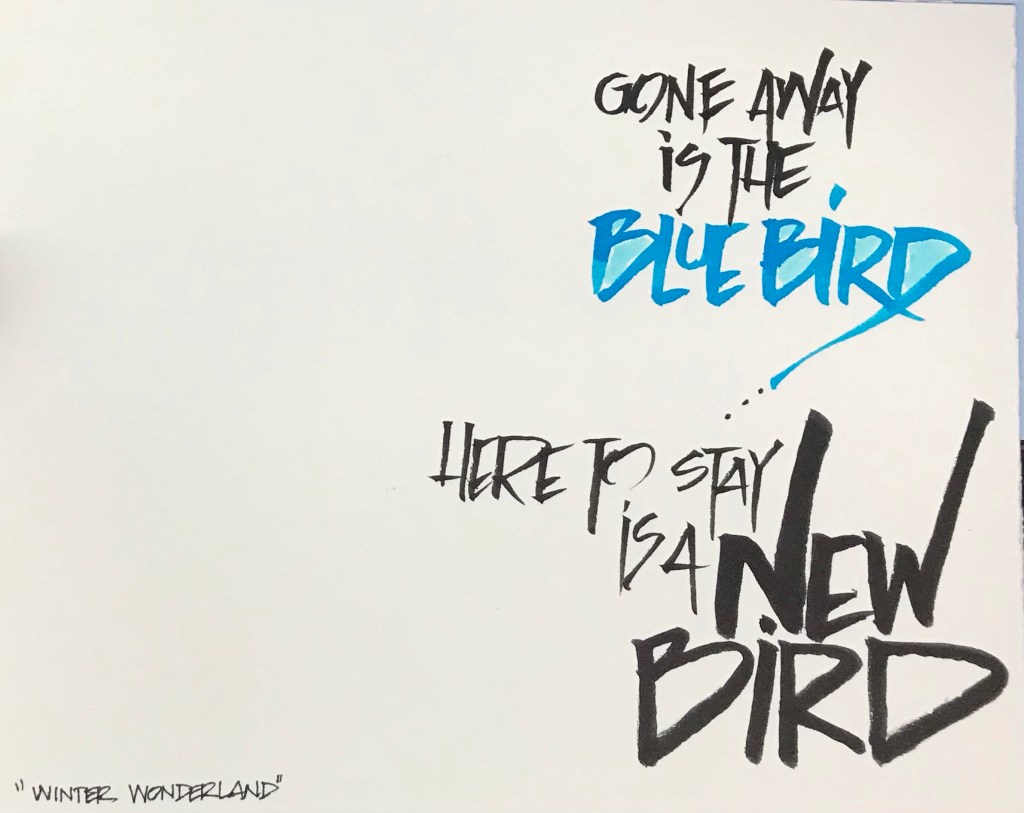 GONE AWAY
iS THE
BLUE BiRD
...
HERE TO STAY
iS A NEW
BiRD
"WINTER WONDERLAND"